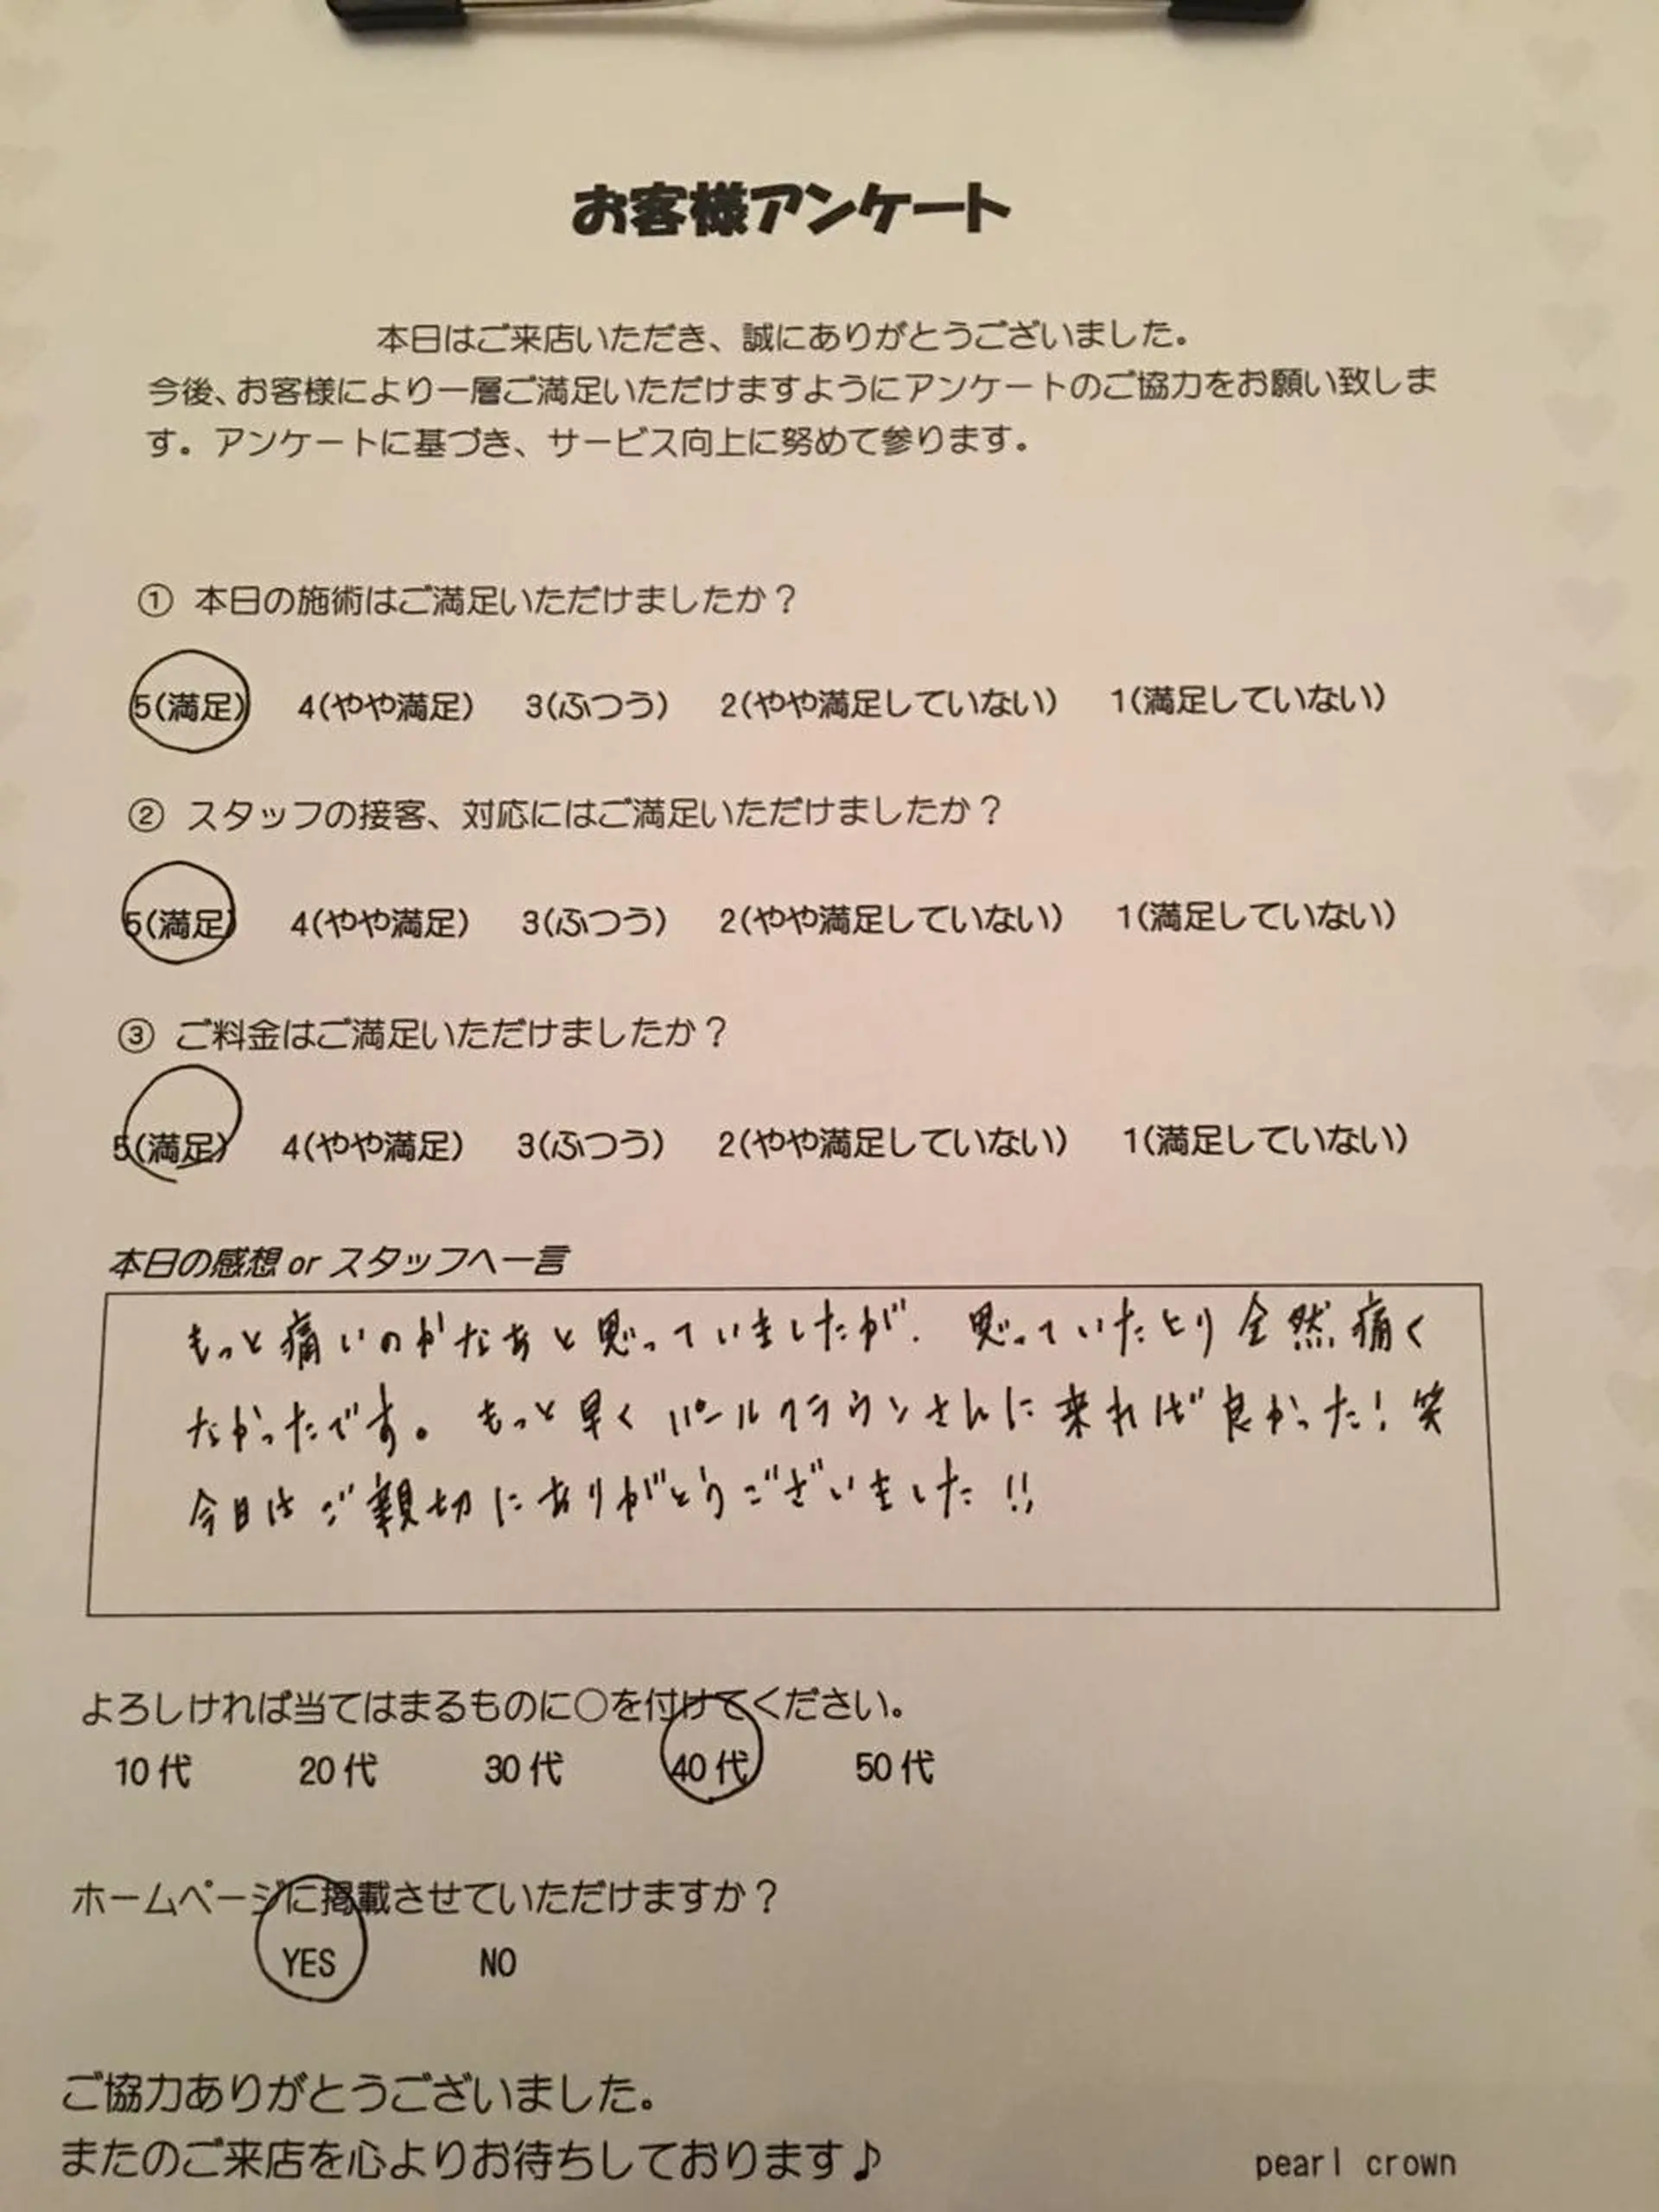 お客様アンケート
本日はご来店いただき、誠にありがとうございました。
今後、お客様により一層ご満足いただけますようにアンケートのご協力をお願い致しま
す。アンケートに基づき、サービス向上に努めて参ります。
① 本日の施術はご満足いただけましたか？
5(満足) 4(やや満足) 3(ふつう) 2(やや満足していない) 1(満足していない)
② スタッフの接客、対応にはご満足いただけましたか？
5(満足) 4(やや満足) 3(ふつう) 2(やや満足していない) 1(満足していない)
③ ご料金はご満足いただけましたか？
5(満足) 4(やや満足) 3(ふつう) 2(やや満足していない) 1(満足していない)
本日の感想 or スタッフへ一言
もっと痛いのかなあと思っていましたが、思っていたより全然痛く
なかったです。もっと早くパールクラウンさんに来れば良かった！笑
今日はご親切にありがとうございました!!
よろしければ当てはまるものに○を付けてください。
10代 20代 30代 40代 50代
ホームページに掲載させていただけますか？
YES NO
ご協力ありがとうございました。
またのご来店を心よりお待ちしております♪
pearl crown